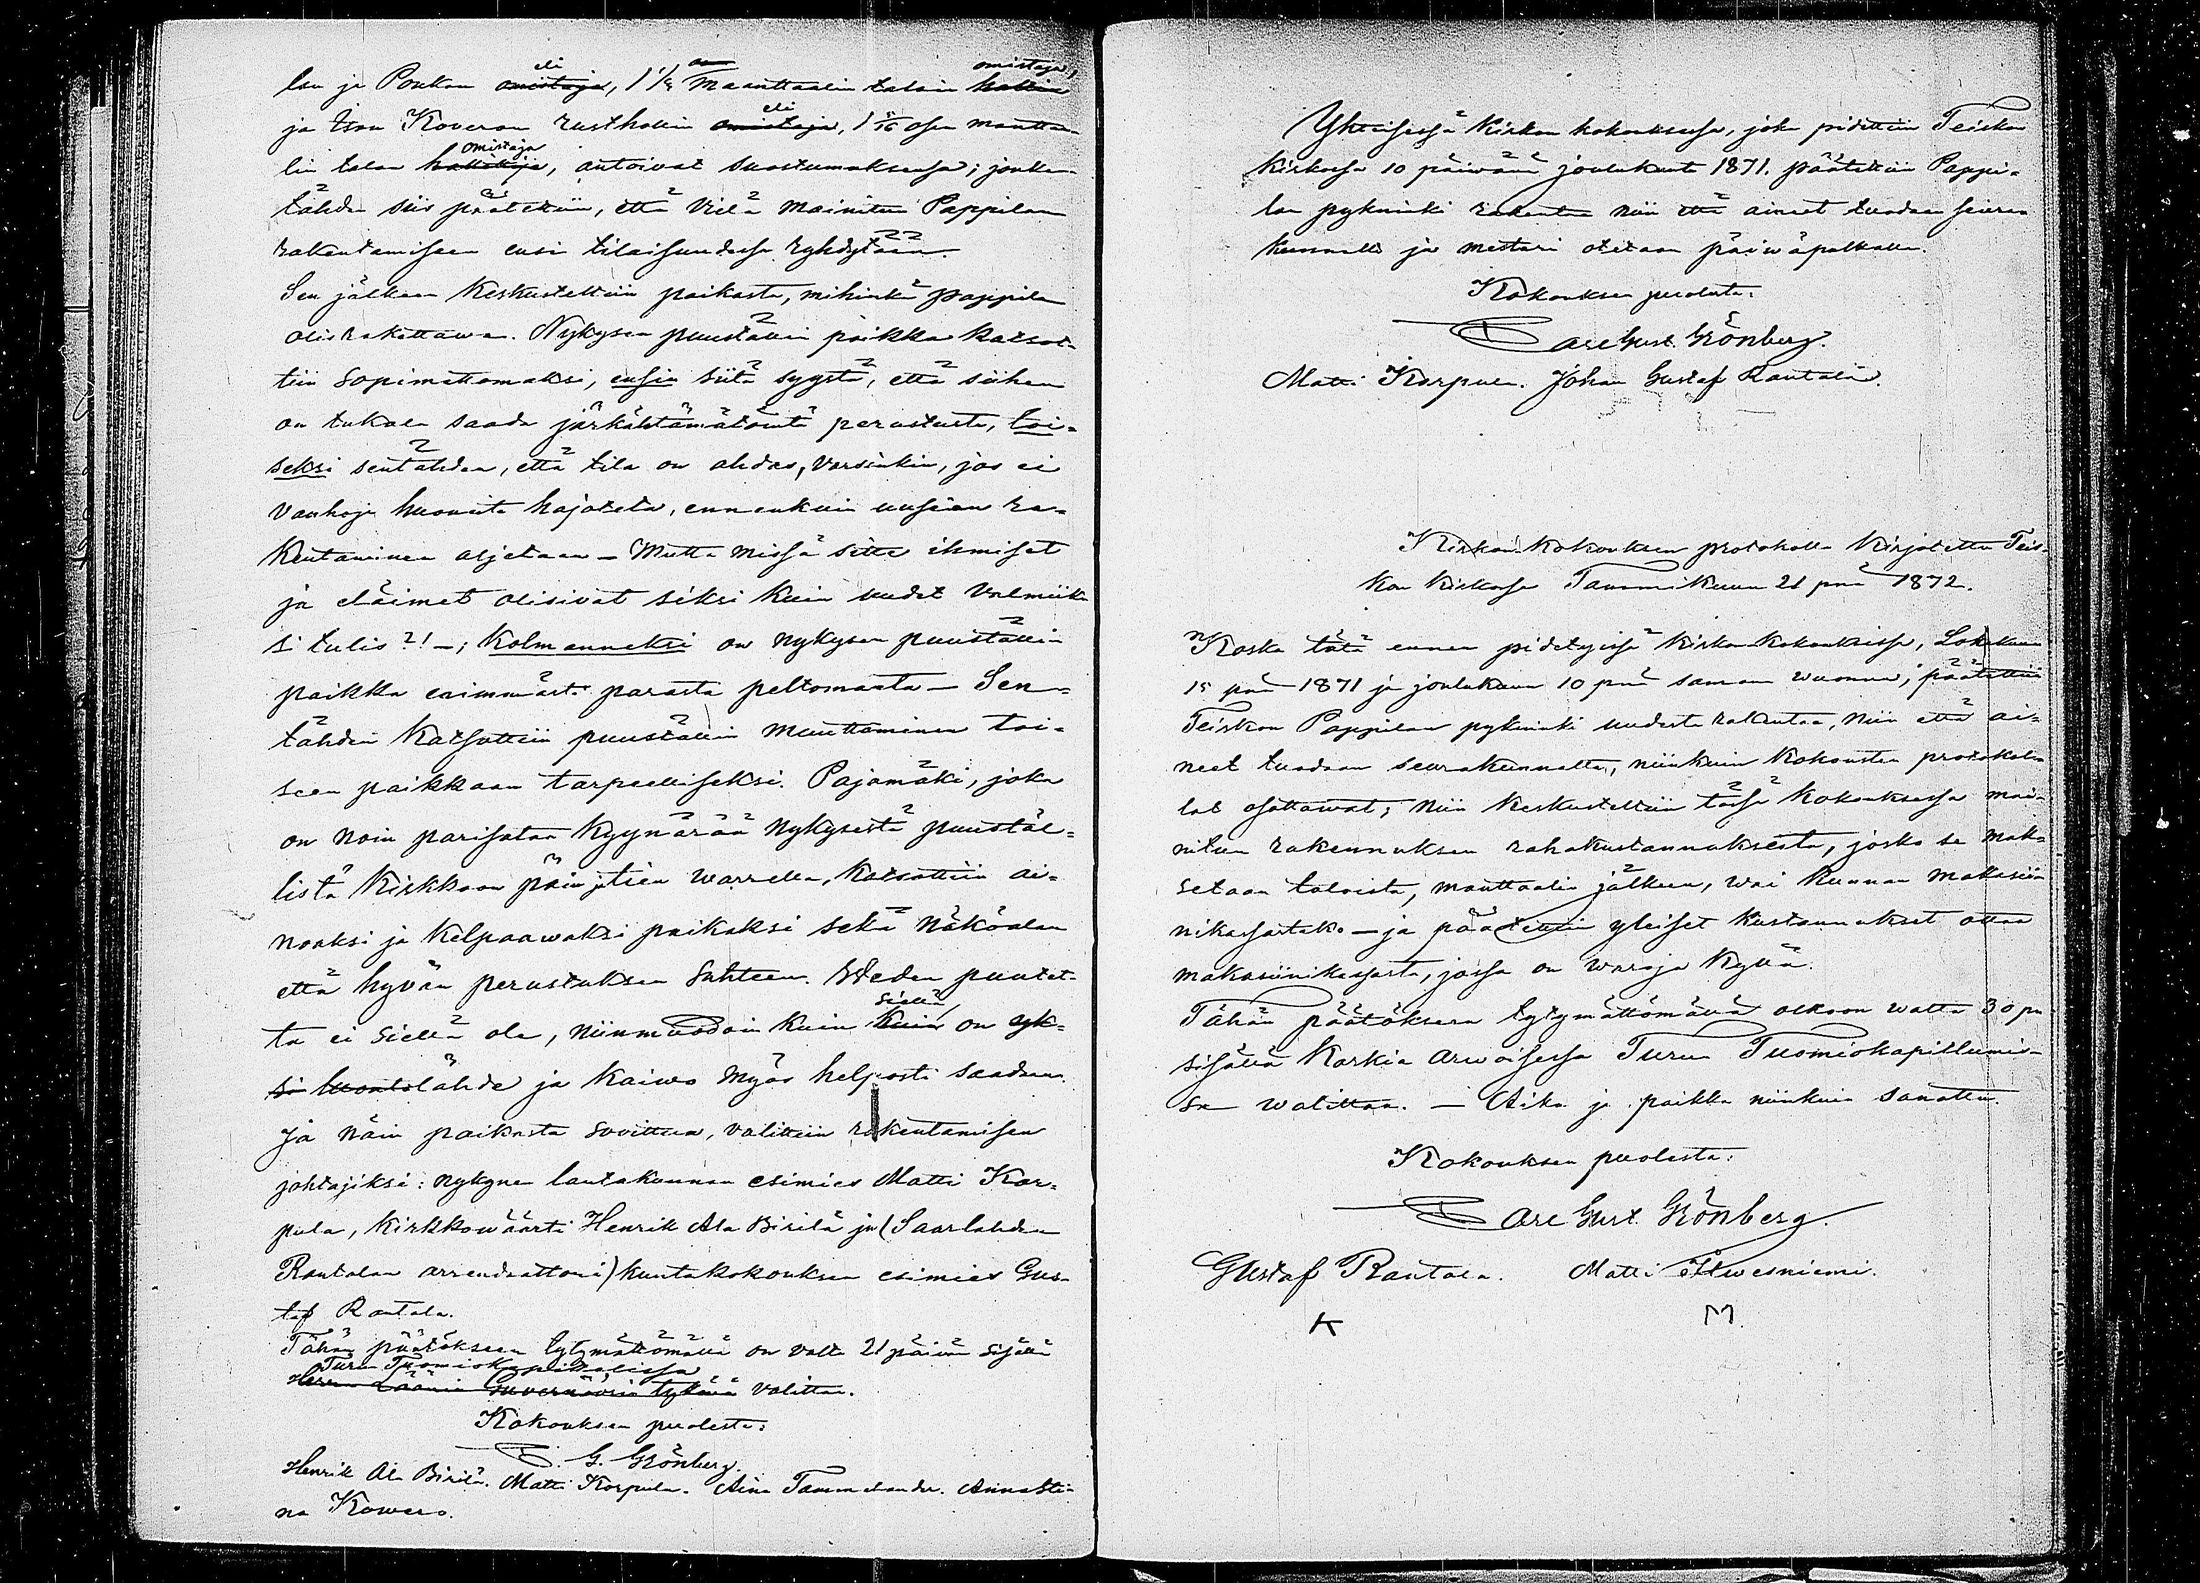 lan ja Poukan eli omistaja, 1 1/8 an Maanttaalin talain hallia omistaja,
ja Ison Koveron rusthollin eli omistaja, 1 5/16 osan mantta-
lin talan hallitija omistaja, antoivat suostumuksensa; jonka-
tähden siis päätettiin, että vielä mainitun Pappilan
rakentamiseen ensi tilaisuudessa ryhdytään.
Sen jälkeen keskusteltiin paikasta, mihinkä pappila
olis rakettawa. Nykysen puuställin paikka katsot-
tiin sopimattomaksi, ensin siitä syystä, että siihen
on tukala saada järkähtämätöintä perustusta, toi-
seksi sentähden, että tila on ahdas, varsinkin, jos ei
vanhoja huoneita hajoteta, ennenkuin uusien ra-
kentaminen aljetaan — Mutta missä sitte ihmiset
ja eläimet olisivat siksi kuin uudet valmiik-
si tulis?! —; kolmanneksi on nykysen puuställin
paikka enimmästi parasta peltomaata — Sen-
tähden katsottiin puuställin muuttaminen toi-
seen paikkaan tarpeelliseksi. Pajamäki, joka
on noin parisataa kyynärää nykysestä puustäl-
listä kirkkoon päin jtien warrella, katsottiin ai-
noaksi ja kelpaawaksi paikaksi sekä näköalan
että hyvän perustuksen suhteen. Weden puutet-
ta ei siellä ole, niinmuodoin kuin kuin siellä on yk-
si luontolähde ja kaiwo myös helposti saadaan.
Ja näin paikasta sovittua, valittiin rakentamisen
johtajiksi: nykynen lautakunnan esimies Matti Kor-
pula, kirkkowäärti Henrik Ala Birilä ja (Saarlahden
Rautalan arrendaattori) kuntakokouksen esimies Gus-
taf Rautala.
Tähän päätökseen tytymättömällä on valta 21 päivän sisällä
Turun Tuomiokapitulissa
Herra Läänin Guvernöörin tykönä valittaa.
Kokouksen puolesta:
C. G. Grönberg.
Henrik Ala Birilä. Matti Korpula. Aina Tammelander. Anna Sti-
na Kowero.
Yhteisessä kirkon kokouksessa, joka pidettiin Teiskon
kirkossa 10 päiwänä joulukuuta 1871. päätettiin Pappi-
lan pykninki rakentaa niin että aineet tuodaan seura-
kunnalta ja mestari otetaan päiwäpalkalla.
Kokouksen puolesta:
Carl Gust. Grönberg.
Matti Korpula. Johan Gustaf Rautala.
Kirkon kokouksen protokolla kirjotettu Teis-
kon kirkossa Tammikuun 21 pnä 1872.
Koska tätä ennen pidetyissä kirkon kokouksissa, Lokakuun
15 pnä 1871 ja joulukuun 10 pnä saman wuonna; päätettiin
Teiskon Pappilan pykninki uudesta rakentaa, niin että ai-
neet tuodaan seurakunnalta, niinkuin kokousten protokol-
lat osottawat; niin keskusteltiin tässä kokouksessa mai-
nitun rakennuksen rahakustannuksesta, josko se mak-
setaan taloista, manttaalin jälkeen, wai kunnan makasii-
nikassastako — ja päätettiin yleiset kustannukset ottaa
makasiinikassasta, jossa on waroja kyllä.
Tähän päätökseen tytymättömällä olkoon walta 30 pn
sisällä korkia arwoisessa Turun Tuomiokapitlumis-
sa walittaa. — Aika ja paikka niinkuin sanottu.
Kokouksen puolesta:
Carl Gust. Grönberg.
Gustaf Rautala. Matti Ilwesniemi.
K M.